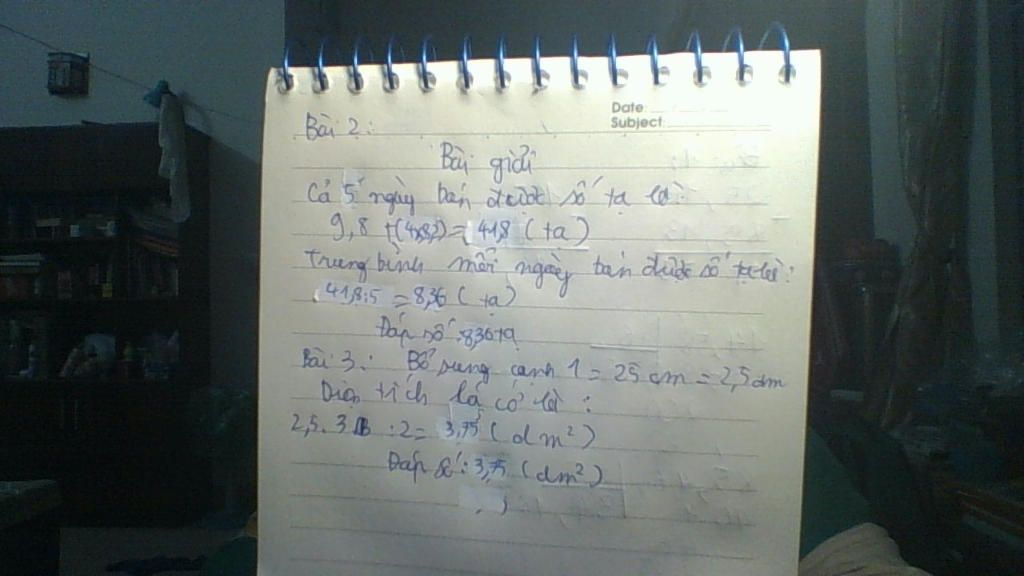 Date
Subject
Bài 2:
Bài giải
Cả 5 ngày bán được số tạ là:
9,8 + (4x8,2) = 41,8 (tạ)
Trung bình mỗi ngày bán được số tạ là:
41,8:5 = 8,36 (tạ)
Đáp số: 8,36 tạ
Bài 3: Bổ sung cạnh 1 = 25 cm = 2,5 dm
Diện tích lá cờ là:
2,5.3 :2 = 3,75 (dm²)
Đáp số: 3,75 (dm²)